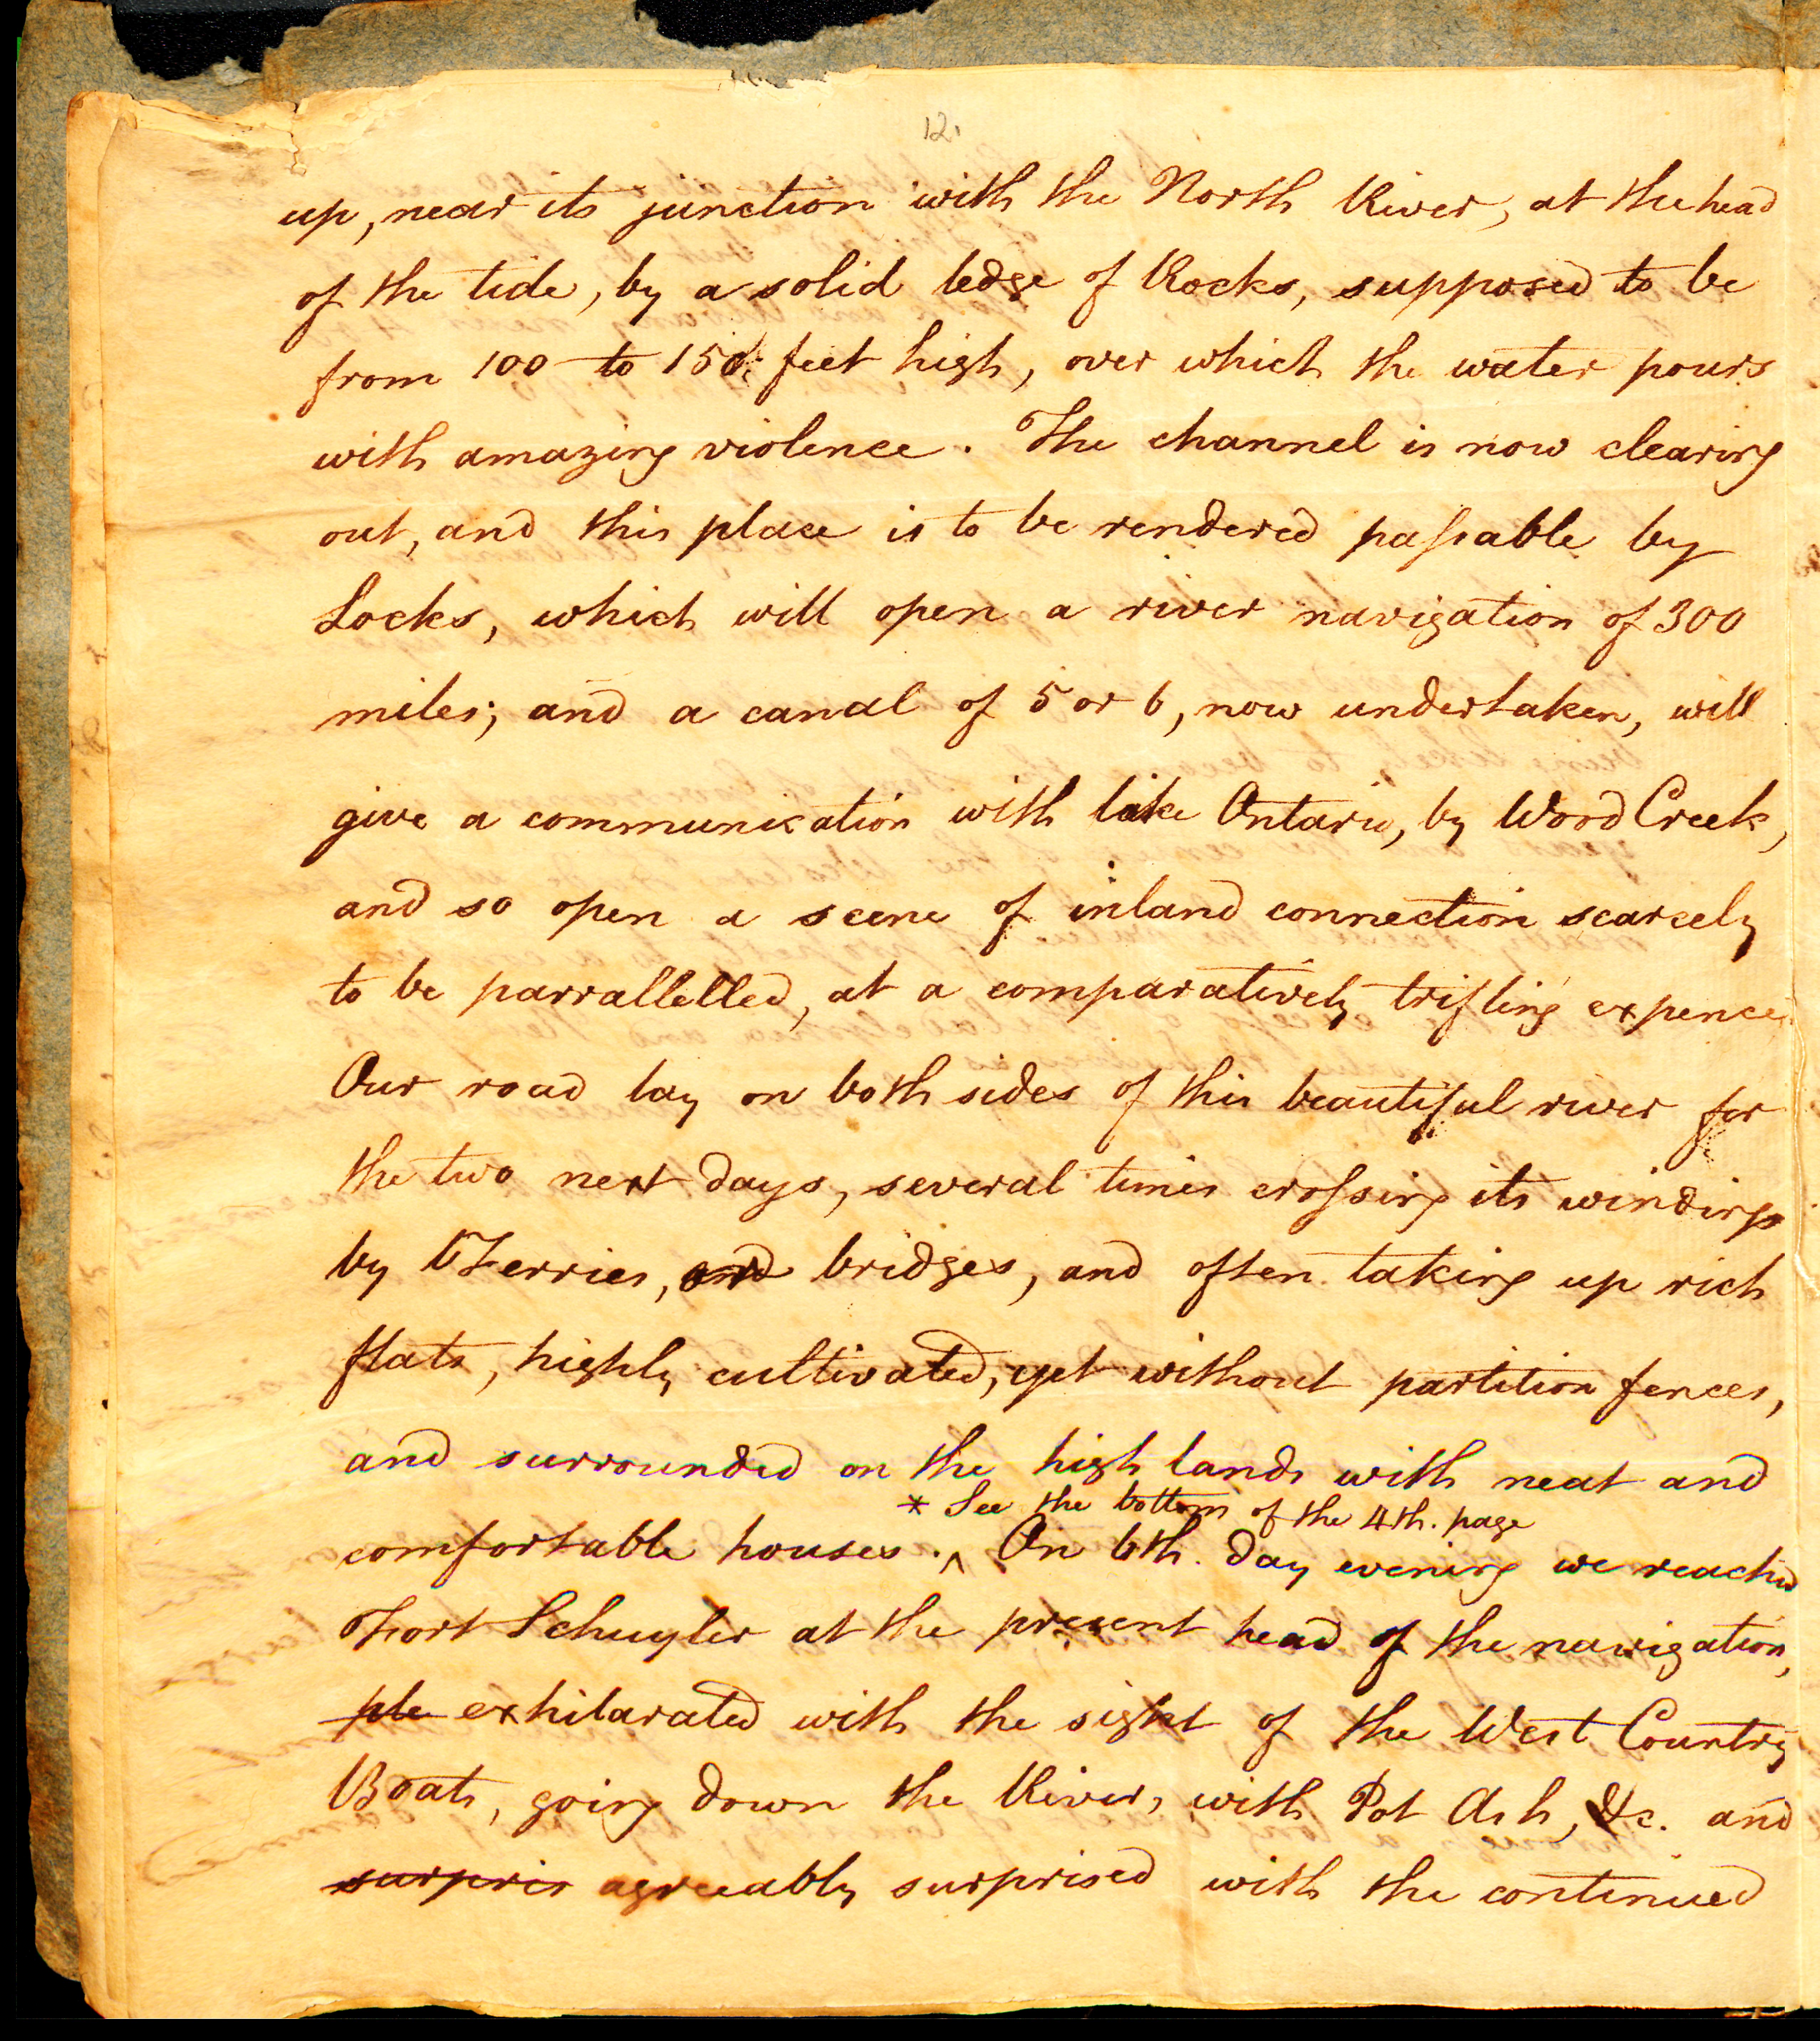 12.
up, near its junction with the North River, at the head
of the tide, by a solid ledge of Rocks, supposed to be
from 100 to 150 feet high, over which the water pours
with amazing violence. The channel is now clearing
out, and this place is to be rendered paſsable by
Locks, which will open a river navigation of 300
miles; and a canal of 5 or 6, now undertaken, will
give a communication with lake Ontario, by Wood Creek,
and so open a scene of inland connection scarcely
to be parrallelled, at a comparatively trifling expence.
Our road lay on both sides of this beautiful river for
the two next days, several times croſsing its windings
by Ferries, and bridges, and often taking up rich
flats, highly cultivated, yet without partition fences,
and surrounded on the high lands with neat and
* See the bottom of the 4th. page
comfortable houses. ^ On 6th. day evening we reached
Fort Schuyler at the present head of the navigation,
ple exhilarated with the sight of the West Country
Boats, going down the River, with Pot Ash, &c. and
surpris agreeably surprised with the continued